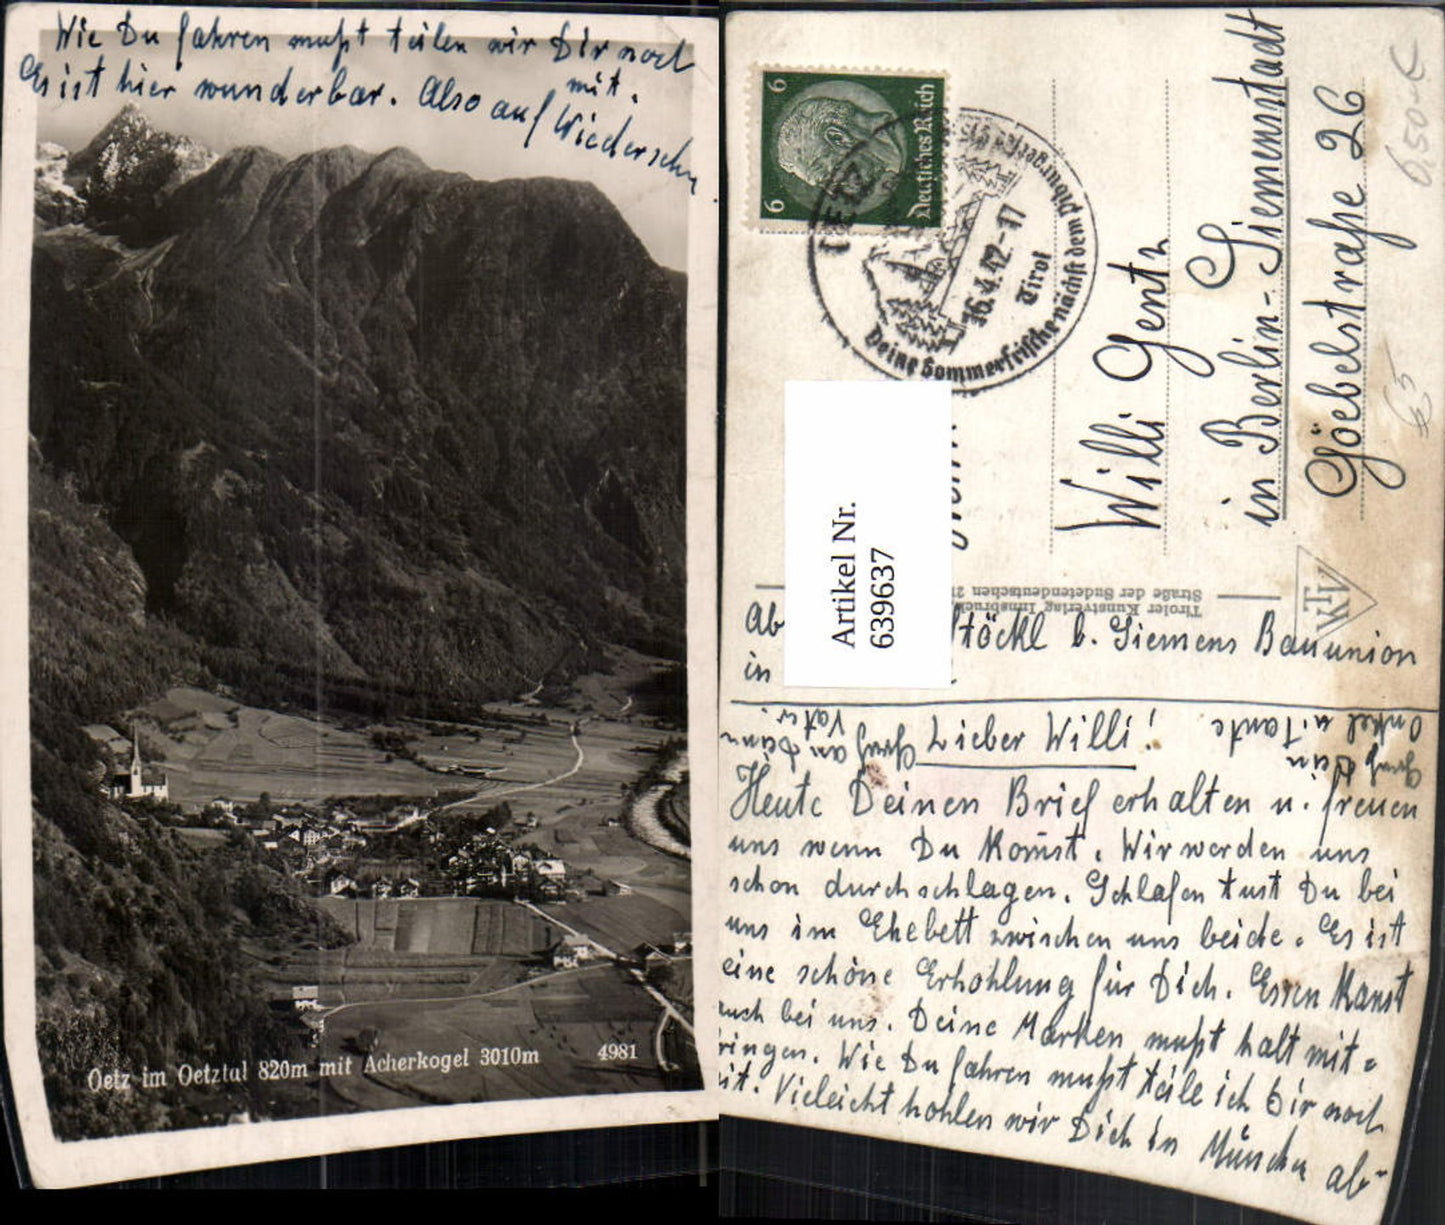 Wie Du fahren mußt teilen wir Dir noch
mit.
Es ist hier wunderbar. Also auf Wiedersehn
Oetz im Oetztal 820m mit Acherkogel 3010m 4981
6
6
Deutsches Reich
OETZ
16.4.42-17
Tirol
Deine Sommerfrische nächst dem
Willi Gentz
in Berlin-Siemensstadt
Göebelstraße 26
6,50
65
Artikel Nr.
639637
Tiroler Kunstverlag Innsbruck
Straße der Sudetendeutschen
Ab Stöckl b. Siemens Bauunion
in
Gruß an Deinen
Vater.
Gruß Dein
Onkel u. Tante
Lieber Willi!
Heute Deinen Brief erhalten u. freuen
uns wenn Du Komst. Wir werden uns
schon durchschlagen. Schlafen tust Du bei
uns im Ehebett zwischen uns beide. Es ist
eine schöne Erhohlung für Dich. Essen Kanst
auch bei uns. Deine Marken mußt halt mit-
ringen. Wie Du fahren mußt teile ich Dir noch
it. Vieleicht hohlen wir Dich in München ab-